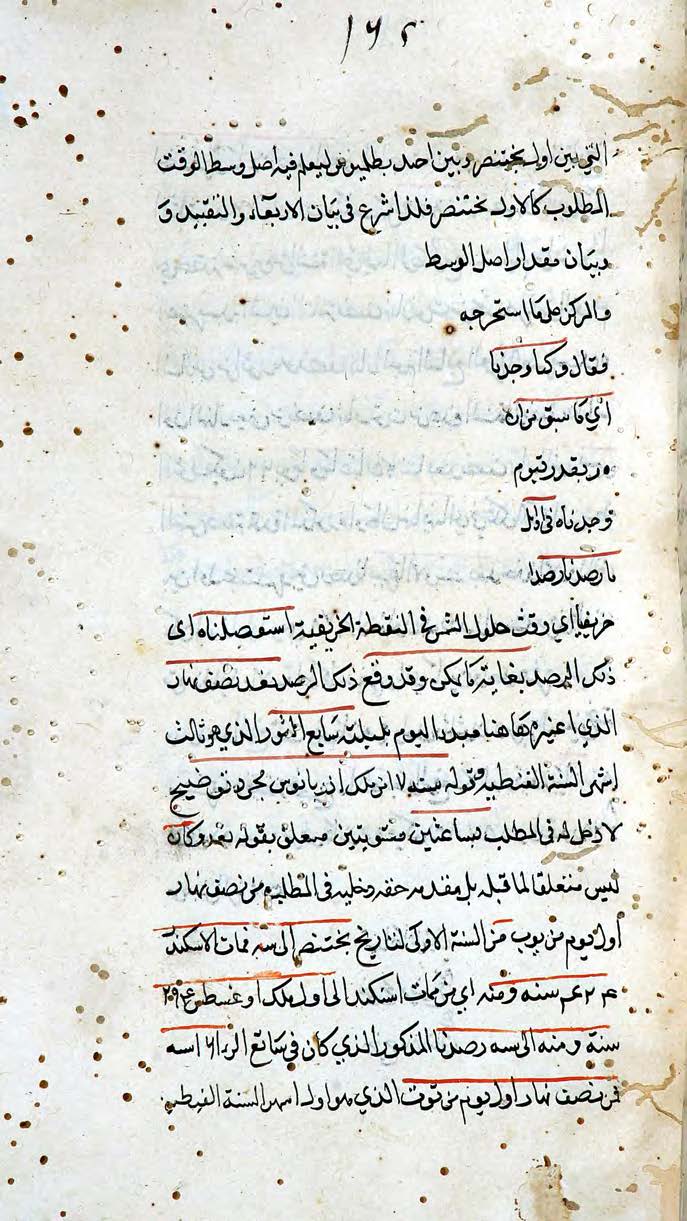 ١٦٢
التي بين اول بختنصر وبين احد بطليموس ليعلم فيه اصل وسط الوقت
المطلوب كالاول بختنصر فلذا شرع في بيان الاربعاء والتقييد و
وبيان مقدار اصل الوسط
والمركز على ما استخرجه
فقال وكنا وجدنا
اي كما سبق من انه
بقدر تيوم
وجدناه في اول
ما رصدنا رصدا
خريفيا اي وقت حلول الشمس في النقطة الخريفية استعصلناه اي
ذلك الرصد بغاية ما يمكن وقد وقع ذلك الرصد بعد نصف نهار
الذي اعتبره هاهنا مبدا اليوم بليلته سابع اثور الذي هو ثالث
اشهر السنة القبطية وقوله سنة ١٧ من ملك اذريانوس مجرد توضيح
لا دخل له في المطلب بساعتين مستويتين متعلق بقوله بعد وكان
ليس متعلقا لما قبله بل مقدمه حقه دخليه في المطلب من نصف نهار
اول يوم من توت من السنة الاولى لتاريخ بختنصر الى سنه ممات الاسكند
٤٢٤ سنه ومنه اي من ممات اسكند الى اول ملك اوغسطس ٢٩٤
سنة ومنه الى سه رصدنا المذكور الذي كان في سابع
من نصف نهار اول يوم من توت الذي هو اول اشهر السنة القبطيه